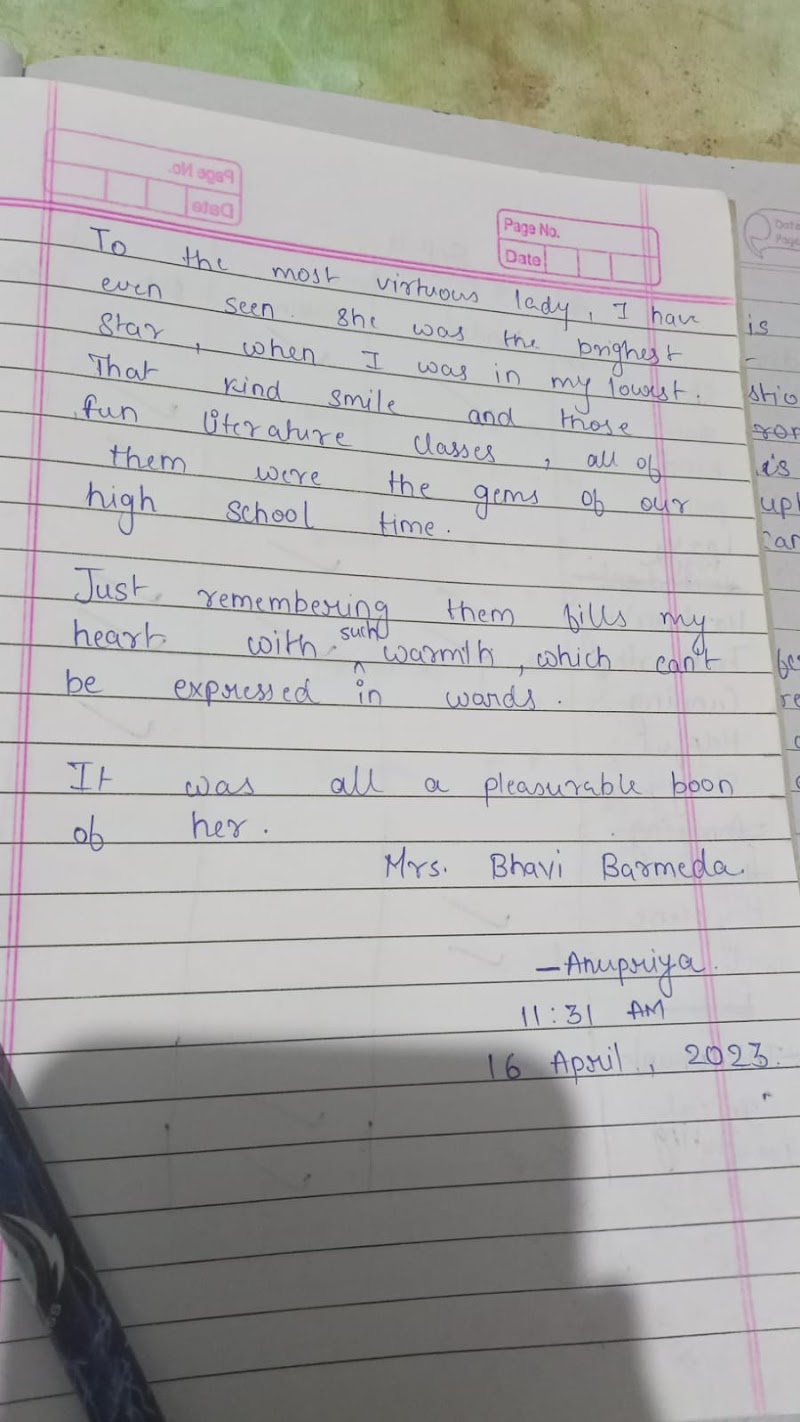 Page No.
Date
Page No.
Date
To the most virtuous lady, I have
even seen. She was the brighest
star, when I was in my lowest.
That kind smile and those
fun literature classes, all of
them were the gems of our
high school time.
Just remembering them fills my
heart with such warmth, which can't
be expressed in wards.
It was all a pleasurable boon
of her.
Mrs. Bhavi Barmeda.
—Anupriya.
11:31 AM
16 April, 2023.
Date
Page
is
stio
is
upl
Can
re